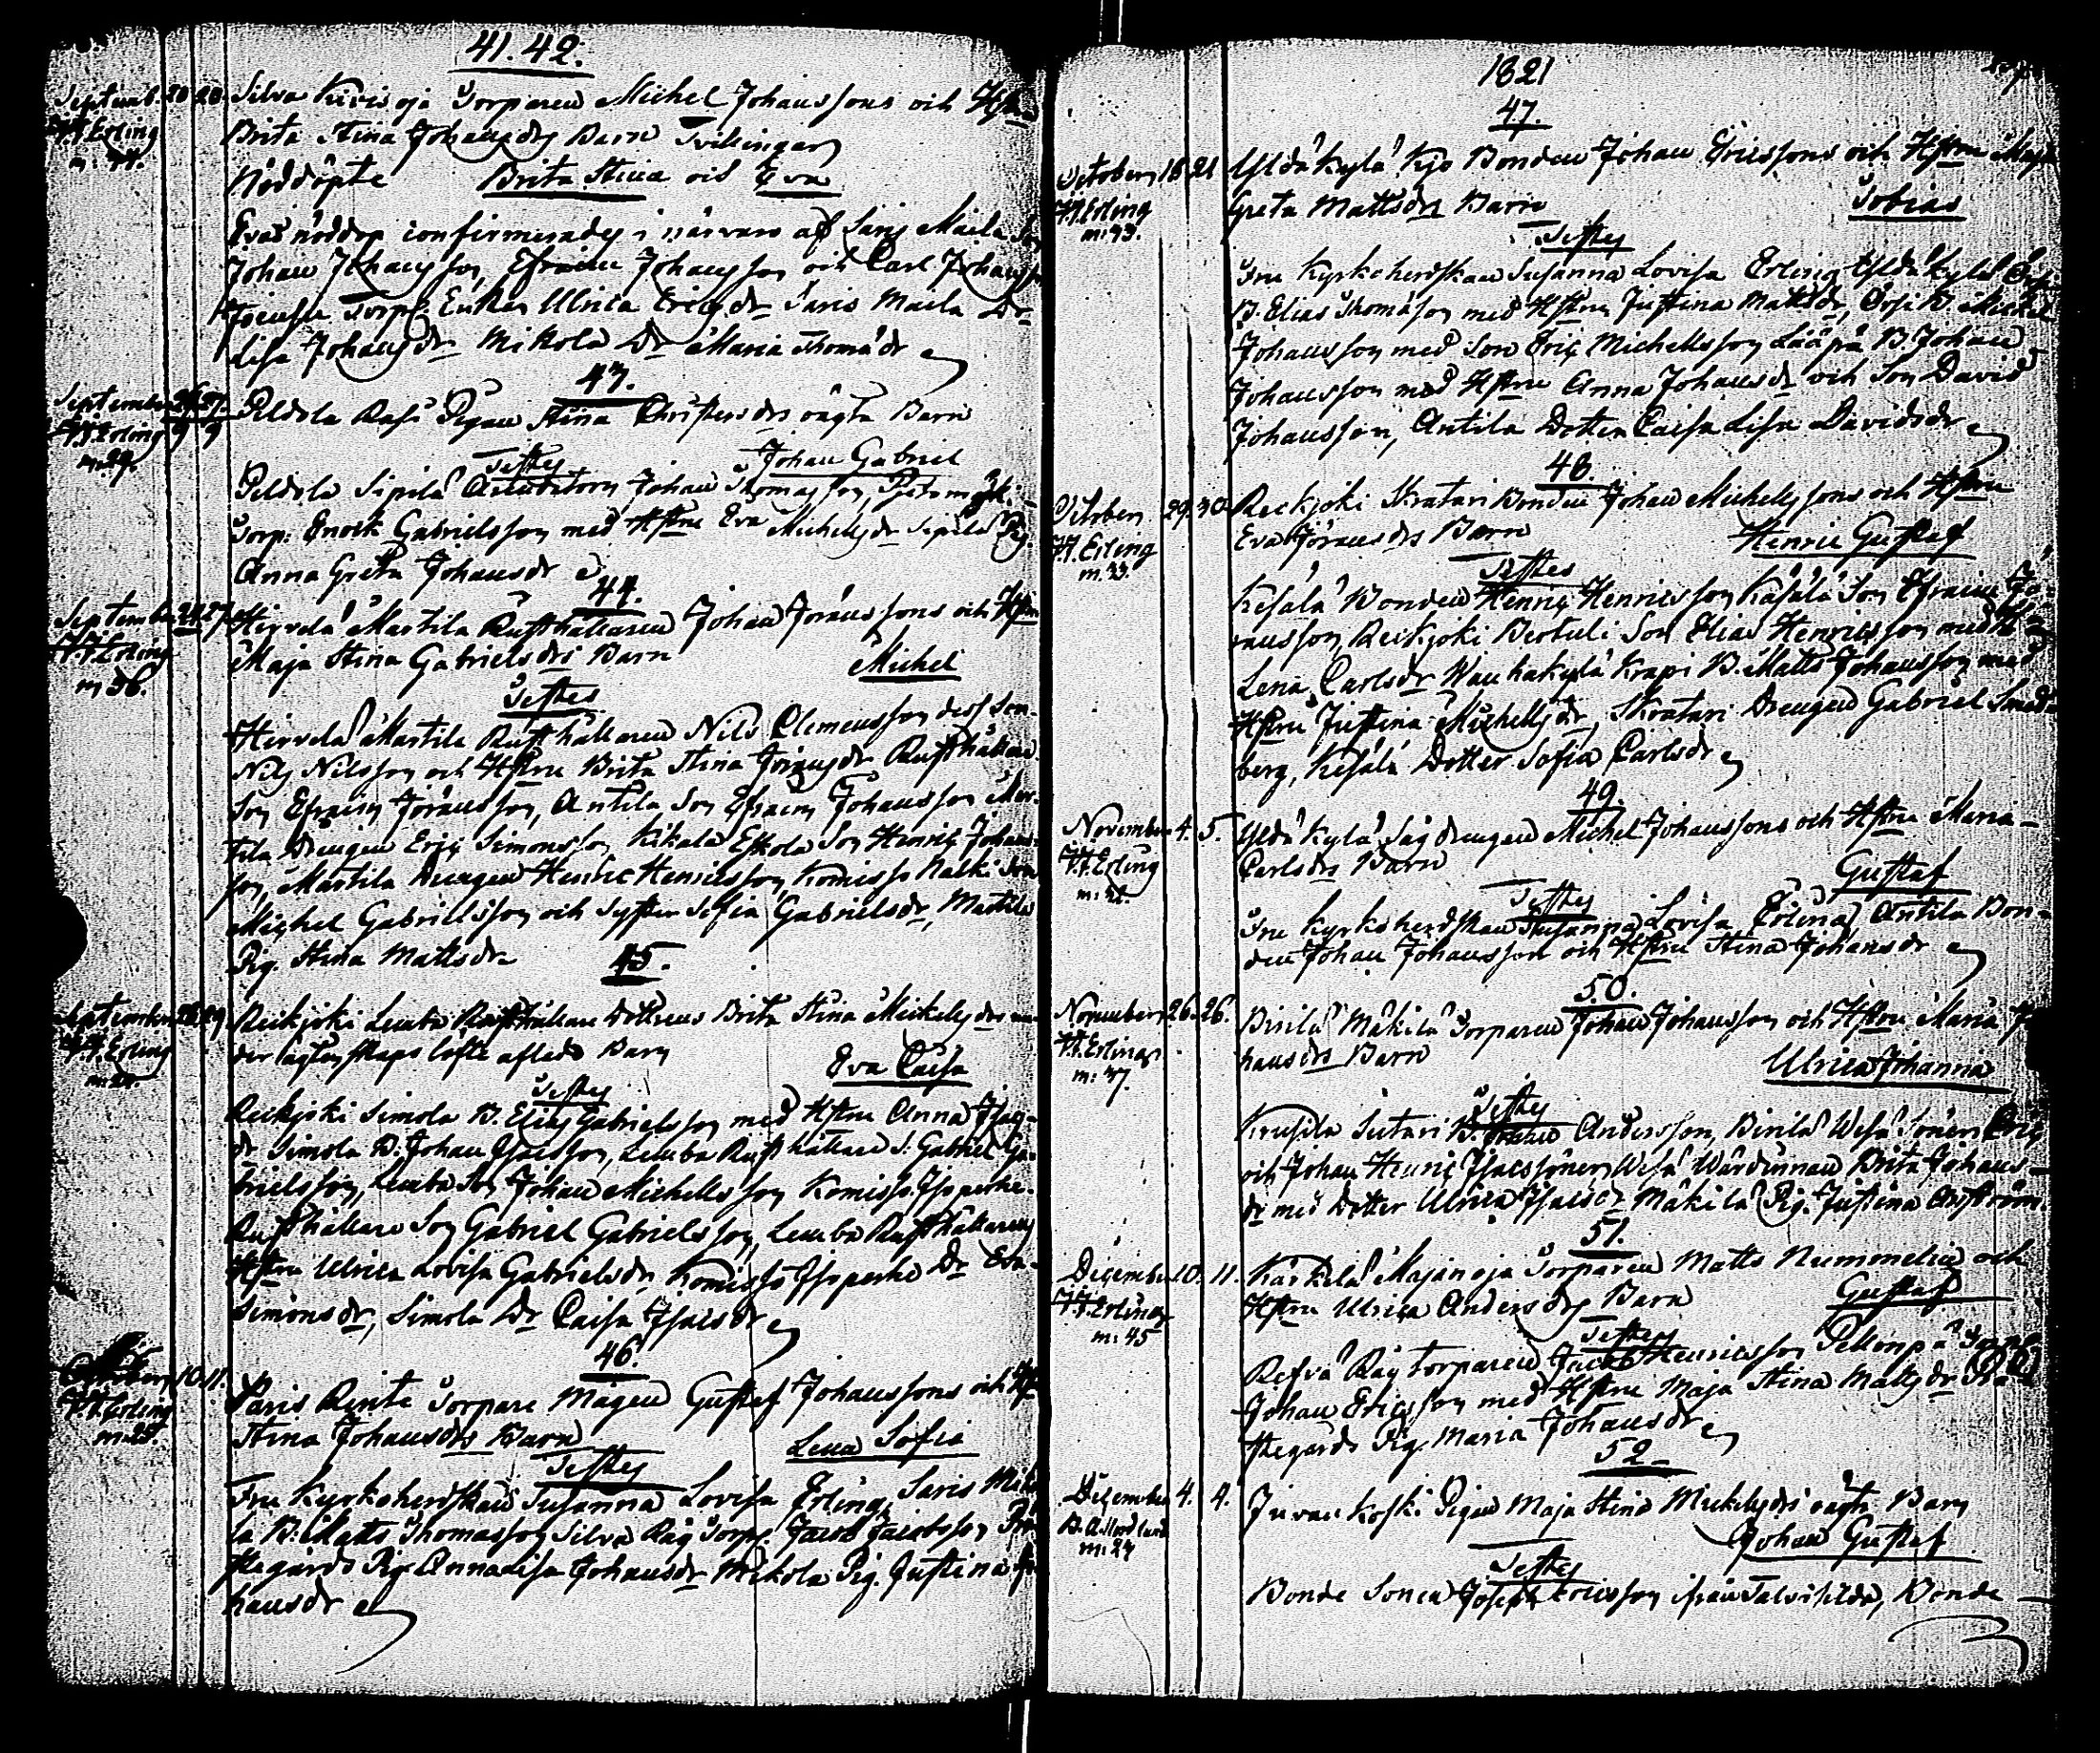 41. 42.
Septemb. 20 20. Silva Kivioja Torparen Michel Johanssons och Hstru
F.F. Erling Brita Stina Johansdrs Barn Tvillingar
m: 44. Nöddöpte Brita Stina och Eva
Evas nöddop confirmerades i närvaro af Saris Maila Son
Johan Johansson, Efraim Johansson och Carl Johansson
Torp: Enkan Ulrica Ericsdr Saris Maila Dr
Lisa Johansdr Mikola Dr Maria Thomädr
43.
September 26 27. Peldola Rasi Pigan Stina Christersdrs oägta Barn
F.F. Erling
m: 27. Testes Johan Gabriel
Peldola Sipilä Johan Thomasson,
Torp: Enock Gabrielsson med Hstru Eva Michelsdr Sipilä Pig.
Anna Greta Johansdr
44.
September 24 27. Hirvelä Martila Rusthållaren Johan Jöranssons och Hstru
F.F. Erling Maja Stina Gabrielsdrs Barn Michel
m 36. Testes
Hirvelä Martila Rusthållaren Nils Clemensson dess Son
Nils Nilsson och Hstru Brita Stina Jöransdr Rusthållare
Son Efraim Jöransson, Antila Son Efraim Johansson Mar-
tila Drengen Eric Simonsson, Kikala Eskola Son Henric Johans-
son, Martila Drengen Henric Henricsson Komisso Nalki Son
Michel Gabrielsson och Syster Sofia Gabrielsdr, Martila
Pig. Stina Mattsdr
45.
September 28 29. Reikjoki Lemba Rusthållare Dottrens Brita Stina Michelsdrs un-
F.F. Erling der ägtenskaps löfte aflade Barn Eva Caisa
Testes
Reikjoki Simola B. Elias Gabrielsson med Hstru Anna Isacs-
dr Simola B. Johan Isacsson, Lemba Rusthållare S. Gabriel Ga-
brielsson, Lemba Son Johan Michelsson Komisso Isoperhe
Rusthållare Son Gabriel Gabrielsson, Lemba Rusthållarens
Hstru Ulrica Lovisa Gabrielsdr, Komisso Isoperhe Dr Eva
Simonsdr, Simola Dr Caisa Isacsdr
46.
October 10. 11. Saris Rinte Torpare Mågen Gustaf Johanssons och Hst
F.F. Erling Stina Johansdrs Barn Lena Sofia
m: 25. Testes
Fru Kyrkoherdskan Susanna Lovisa Erling, Saris Miko
la B. Matts Thomasson Silva Räg Torp Jacob Jacobsson
stegårds Pig Anna Lisa Johansdr Mikola Pig. Justina Jo
hansdr
1821
47.
October 18 21 Yldäkylä Kjo Bonden Johan Ericssons och Hstru Maja
F.F. Erling Greta Mattsdrs Barn Tobias
m: 43. Testes
Fru Kyrkoherdskan Susanna Lovisa Erling Yldäkylä
B. Elias Thomasson med Hstru Justina Mattsdr, B. Michel
Johansson med Son Eric Michelsson Lääpä B. Johan
Johansson med Hstru Anna Johansdr och Son David
Johansson, Antila Dotter Caisa Lisa Davidsdr
48.
October 29. 30. Reikjoki Skratari Bonden Johan Michelssons och Hstru
F.F. Erling Eva Jöransdrs Barn Henric Gustaf
m. 33. Testes
Kesälä Bonden Henric Henricsson Käsälä Son Efraim Jö-
ransson, Reikjoki Bertuli Son Elias Henricsson med Hstru
Lena Carlsdr Wanhakylä Krapi B. Matts Johansson med
Hstru Justina Michelsdr, Skratari Drengen Gabriel
berg, Kesälä Dotter Sofia Carlsdr
49.
November 4. 5. Yldäkylä Sågdrengen Michel Johanssons och Hstru Maria
F.F. Erling Carlsdrs Barn Gustaf
Testes
Fru Kyrkoherdskan Susanna Lovisa Erling Antila Bon-
den Johan Johansson och Hstru Stina Johansdr
50.
November 26. 26. Birilä Mäkilä Torparen Johan Johansson och Hstru Maria Jo
F.F. Erling hansdrs Barn Ulrica Johanna
m: 37. Testes
Krusila Sutari B. Andersson, Birilä Wesa Söner Eric
och Johan Henric Isacssöner, Wesa Wärdinnan Brita Johans-
dr med Dotter Ulrica Isacsdr Mäkilä Pig. Justina
51.
December 10. 11. Kärkelä Majanoja Torparen Matts Nummelin och
F.F. Erling Hstru Ulrica Andersdrs Barn Gustaf
m: 45 Testes
Refvä Räg torparen Jacob Henricsson Torp
Johan Ericsson med Hstru Maja Stina Mattsdr
stegårds Pig. Maria Johansdr
52
December 4. 4. Juvankoski Pigan Maja Stina Michelsdrs oägta Barn
m: 24 Johan Gustaf
Testes
Bonde Sonen Joseph Ericsson ifrån Talvisilda, Bonde